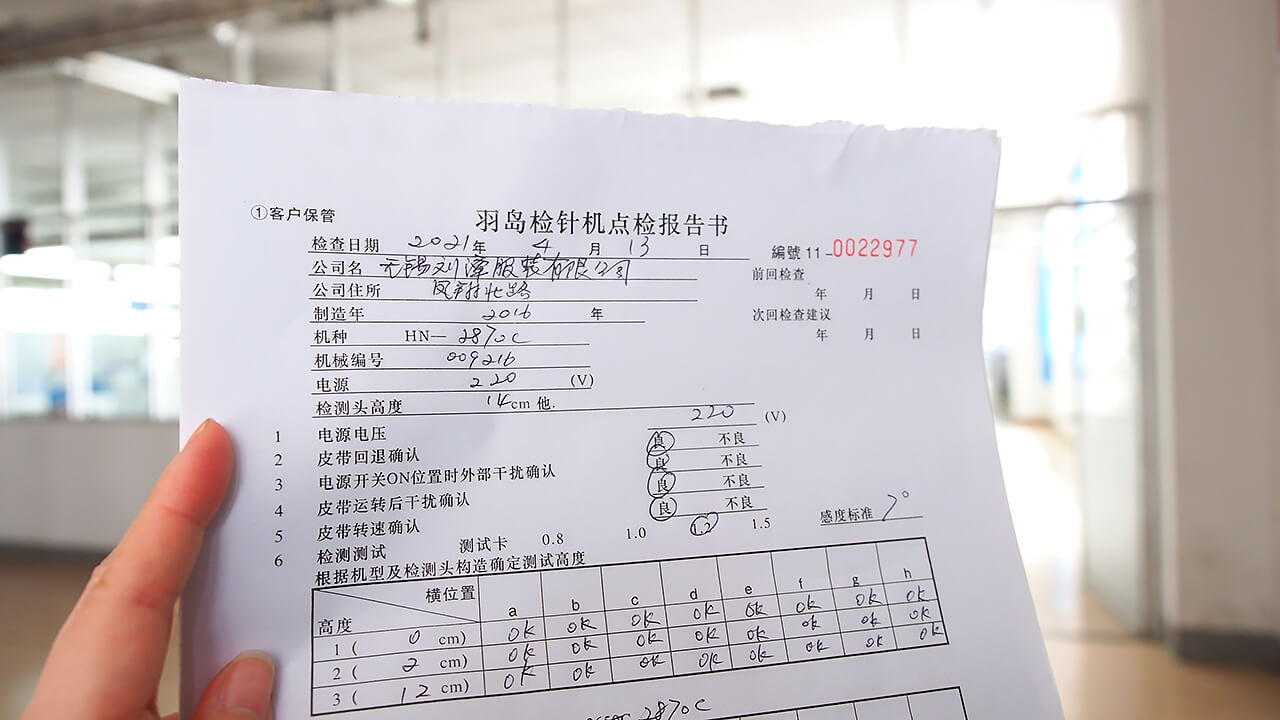 ①客户保管
羽岛检针机点检报告书
检查日期 2021年 4 月 13 日
編號 11-0022977
公司名 无锡刘潭服装有限公司
前回检查
年 月 日
公司住所 凤翔北路
次回检查建议
年 月 日
制造年 2016 年
机种 HN— 2870C
机械编号 009216
电源 220 (V)
检测头高度 14cm 他.
1 电源电压 220 (V)
2 皮带回退确认 良 不良
3 电源开关ON位置时外部干扰确认 良 不良
4 皮带运转后干扰确认 良 不良
5 皮带转速确认 良 不良
6 检测测试 测试卡 0.8 1.0 1.2 1.5 感度标准 7°
根据机型及检测头构造确定测试高度
横位置 a b c d e f g h
高度
1 ( 0 cm) OK OK OK OK OK OK OK OK
2 ( 2 cm) OK OK OK OK OK OK OK OK
3 ( 12 cm) OK OK OK OK OK OK OK OK
2870C